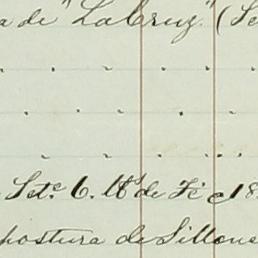 a de "La Cruz" (Se
Set.e 6. Ms de Fé c 18
postura de Sillone